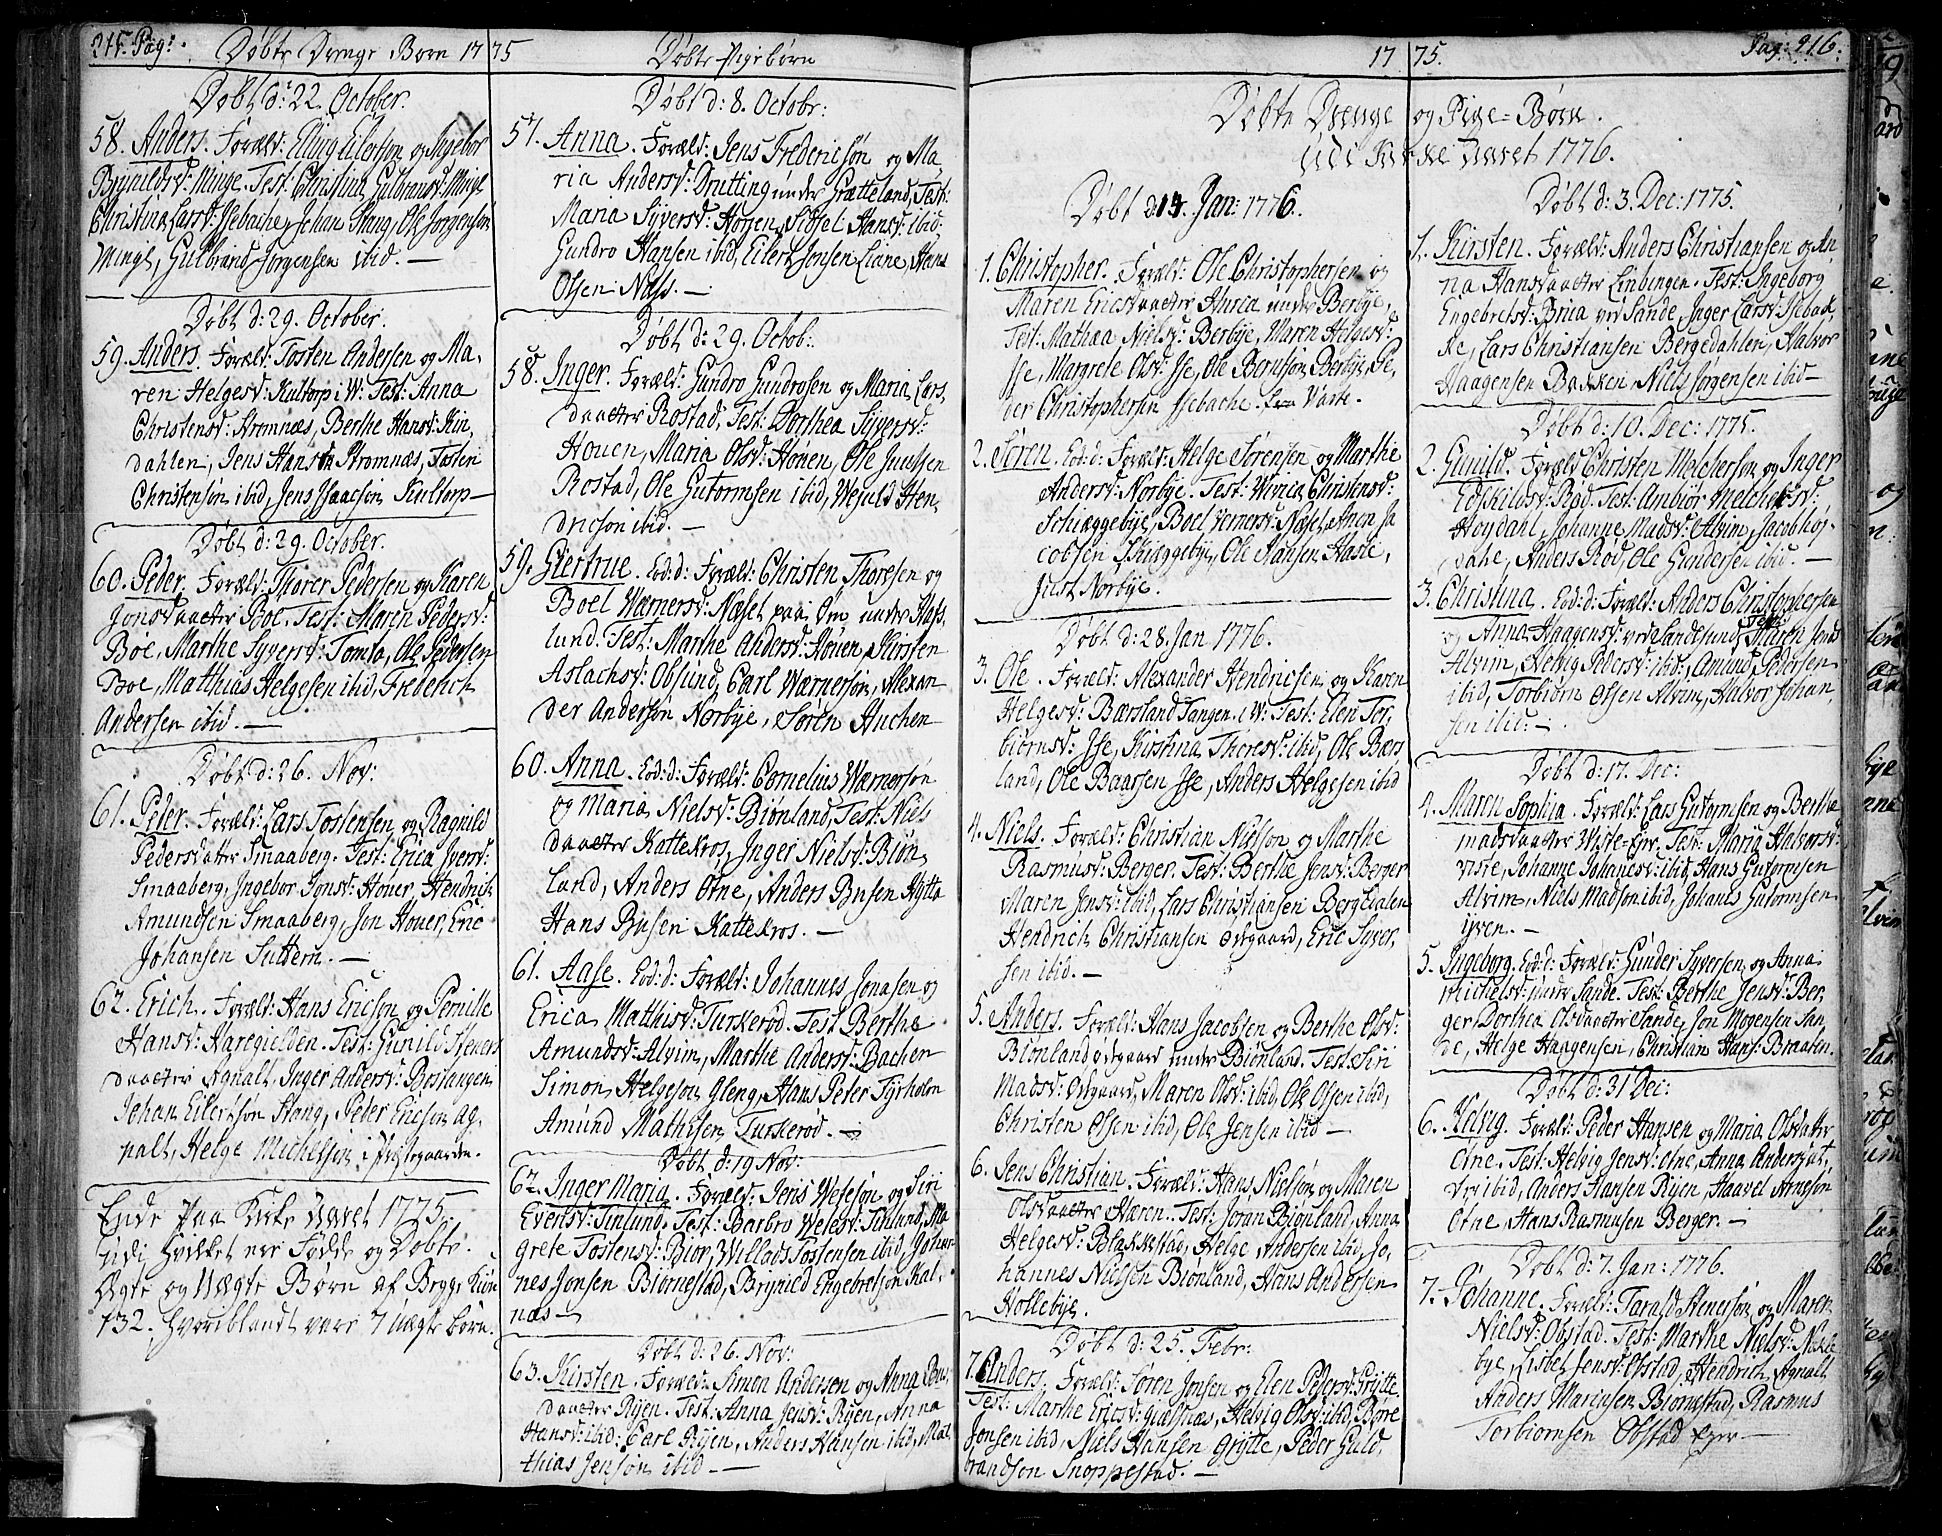 215. Pag:
Døbte Drenge Børn 1775
Døbt d: 22. October.
58. Anders. Foræld: Elling Eilertson og Ingebor
Brynildsd: Minge. Test: Christina Gulbransd: Minge
Christina Larsd: Isebache, Johan Stang, Ole Jørgensen
Minge, Gulbrand Jørgensen ibid. —
Døbt d: 29. October.
59. Anders. Foræld: Tosten Andersen og Ma-
ren Helgesd: Kultorp i W: Test: Anna
Christensd: Strømnæs, Berthe Hansd: Kin
dahlen, Jens Hansen Strømnæs, Tosten
Christensøn ibid, Jens Isaacsøn Kultorp —
Døbt d: 29. October.
60. Peder. Foræld: Thorer Pedersen og Karen
Jonsdaatter Boe. Test: Maren Pedersd:
Bøe, Marthe Syversd: Tomta, Ole Pedersen
Boe, Matthias Helgesen ibid, Frederich
Andersen ibid. —
Døbt d: 26. Nov:
61. Peter. Foræld: Lars Tostensen og Ragnild
Pedersdatter Smaaberg. Test: Erica Iversd:
Smaaberg, Ingebor Jonsd: Houer, Hendrich
Amundsen Smaaberg, Jon Houer, Eric
Johansen Suttern. —
62. Erich. Foræld: Hans Ericson og Pernille
Hansd: Haregielden. Test: Gunild Steners
daatter Agnalt, Inger Andersd: Bostangen
Johan Eilertsøn Stang, Peter Ericson Ag-
nalt, Helge Michelsen i Præstegaarden.
Ende paa Kirke Aaret 1775.
udi hvilket ere Fødde og Døbte.
Ægte og Uægte Børn af Begge Kiøn
132. hvoriblandt vare 7 uægte børn.
Døbte Pigebørn
Døbt d: 8. Octobr:
57. Anna. Foræld: Jens Fredericsøn og Ma-
ria Andersd: Drutting under Grætteland, Test:
Maria Syversd: Houen, Sidsel Hansd: ibid:
Gundro Hansen ibid, Eilert Jonsen Liane, Hans
Olsen Næss. —
Døbt d: 29. Octob:
58. Inger. Foræld: Gundro Gundrosen og Maria Lars-
daatter Rostad, Test: Dorthea Syversd:
Houen, Maria Olsd: Houen, Ole Juulsen
Rostad, Ole Gutormsen ibid, Wejuld Hen
dricson ibid. —
59. Giertrue. Eod: d: Foræld: Christen Thoresen og
Boel Wærnersd: Næset paa Øen under Hafs-
lund. Test: Marthe Andersd: Houen, Kirsten
Aslachsd: Obsund, Carl Wærnersøn, Alexan
der Andersøn Norbye, Søren Huchen —
60. Anna. Eod: d: Foræld: Cornelius Wærnersøn
og Maria Nielsd: Biønland, Test: Niels
daatter Kattekros, Inger Nielsd: Biøn
land, Anders Otne, Anders Busen Hytta
Hans Busen Kattekros. —
61. Aase. Eod: d: Foræld: Johannes Jonasen og
Erica Matthisd: Turkerød. Test: Berthe
Amundsd: Alvim, Marthe Andersd: Bachen
Simon Helgeson Gleng, Hans Peter Fyrholm
Amund Mathisen Turkerød. —
Døbt d: 19 Nov:
62. Inger Maria. Foræld: Jens Wetesøn og Siri
Evensd: Tinlund. Test: Barbro Wetesd: Tinlund, Ma
grete Tostensd: Bior, Willads Tostensen ibid, Johan
nes Jonsen Biørnestad, Brynild Engebretsøn Kal-
næs —
Døbt d: 26. Nov:
63. Kirsten. Foræld: Simon Andersen og Anna Lars
daatter Ryen. Test: Anna Jensd: Ryen, Anna
Hansd: ibid: Carl Ryen, Anders Hansen ibid, Mat
thias Jensøn ibid —
1775.
Pag: 216.
Døbte Drenge og Pige-Børn.
Udi Kirke Aaret 1776.
Døbt d: 14. Jan: 1776.
1. Christopher. Foræld: Ole Christophersen og
Maren Ericsdaatter Huria under Berbye,
Test: Mathea Nielsd: Berbye, Maren Helgesd:
Ise, Margrete Olsd: Ise, Ole Bentson Berbye, Pe-
der Christophersen Isebache. Varte.
2. Søren. Eod: d: Foræld: Helge Sørensen og Marthe
Andersd: Norbye. Test: Wivica Christensd:
Schiæggebye, Boel Vernersd: Næset, Anen Ja
cobsen Skiæggebye, Ole Hansen Hasle,
Just Norbye.
Døbt d: 28. Jan 1776.
3. Ole. Foræld: Alexander Hendricsen og Karen
Helgesd: Bærsland Tangen i W: Test: Elen Tor-
biørnsd: Ise, Kirstina Thoresd: ibid, Ole Bærs
land, Ole Baarsen Ise, Anders Helgesen ibid
4. Niels. Foræld: Christian Nielson og Marthe
Rasmusd: Berger. Test: Berthe Jensd: Berger
Maren Jensd: ibid, Lars Christiansen Bergedalen
Hendrich Christiansen Ødegaard, Eric Syver-
sen ibid. —
5. Anders. Foræld: Hans Jacobsen og Berthe Olsd:
Biønland, Ødgaard under Biønland. Test: Siri
Madsd: Ødgaard, Maren Olsd: ibid, Ole Olsen ibid,
Christen Olsen ibid, Ole Jensen ibid —
6. Jens Christian. Foræld: Hans Nielsøn og Maren
Olsdaatter Hæren. Test: Joran Biønland, Anna
Helgesd: Blakkestad, Helge Andersen ibid, Jo
hannes Nielsen Biønland, Hans Andersen
Hollebye.
Døbt d: 25. Febr:
7. Anders. Foræld: Søren Jonsen og Elen Pedersd: Grytte
Test: Marthe Ericsd: Giælsnæs, Helvig Olsd: ibid, Børe
Jonsen ibid, Niels Hansen Grytte, Peder Guld
brandsøn Snoppestad. —
Døbt d: 3. Dec: 1775.
1. Kirsten. Foræld: Anders Christiansen og An-
na Hansdaatter Linbingen. Test: Ingeborg
Engebretsd: Brua ved Sande, Inger Larsd: Isebak
ke, Lars Christiansen Bergedahlen, Halvor
Haagensen Bakken, Niels Jørgensen ibid —
Døbt d: 10. Dec: 1775.
2. Gunild. Foræld Christen Melcherson og Inger
Edskildsd: Rød. Test: Ambiør Melchersd:
Høydahl, Johanne Madsd: Alvim, Jacob Høy
dahl, Anders Rød, Ole Gundersen ibid. —
3. Christina. Eod: d: Foræld: Anders Christophersen
og Anna Haagensd: ved Sandesund, Test: Maren Jensd
Alvim, Helvig Pedersd: ibid, Amund Pedersen
ibid, Torbiørn Olsen Alvim, Halvor Johan,
sen ibid: —
Døbt d: 17. Dec:
4. Maren Sophia. Foræld: Lars Gutormsen og Berthe
Madsdaatter Wiste-Eyr. Test: Maria Halvorsd:
Viste, Johanne Johanesd: ibid, Hans Gutormsen
Alvim, Niels Madsøn ibid, Johanes Gutormsen
Yven. —
5. Ingeborg. Eod: d: Foræld: Gunder Syversen og Anna
Michelsd: under Sande. Test: Berthe Jensd: Ber-
ger, Dorthea Olsdaatter Sande, Jon Mogensen San
de, Helge Haagensen, Christian Hans: Braaten.
Døbt d: 31 Dec:
6. Helvig. Foræld: Peder Hansen og Maria Olsdatter
Otne. Test: Helvig Jensd: Otne, Anna Andersdat,
ter ibid, Anders Hansen Ryen, Haavel Arneson
Otne, Hans Rasmusen Berger. —
Døbt d: 7. Jan: 1776.
7. Johanne. Foræld: Tarald Stenesøn og Maren
Nielsd: Obstad. Test: Marthe Nielsd: Nokle
bye, Lisbet Jensd: Obstad, Hendrich Agnalt
Anders Marinsen Biørnstad, Rasmus
Torbiornsen Obstad Eyer. —